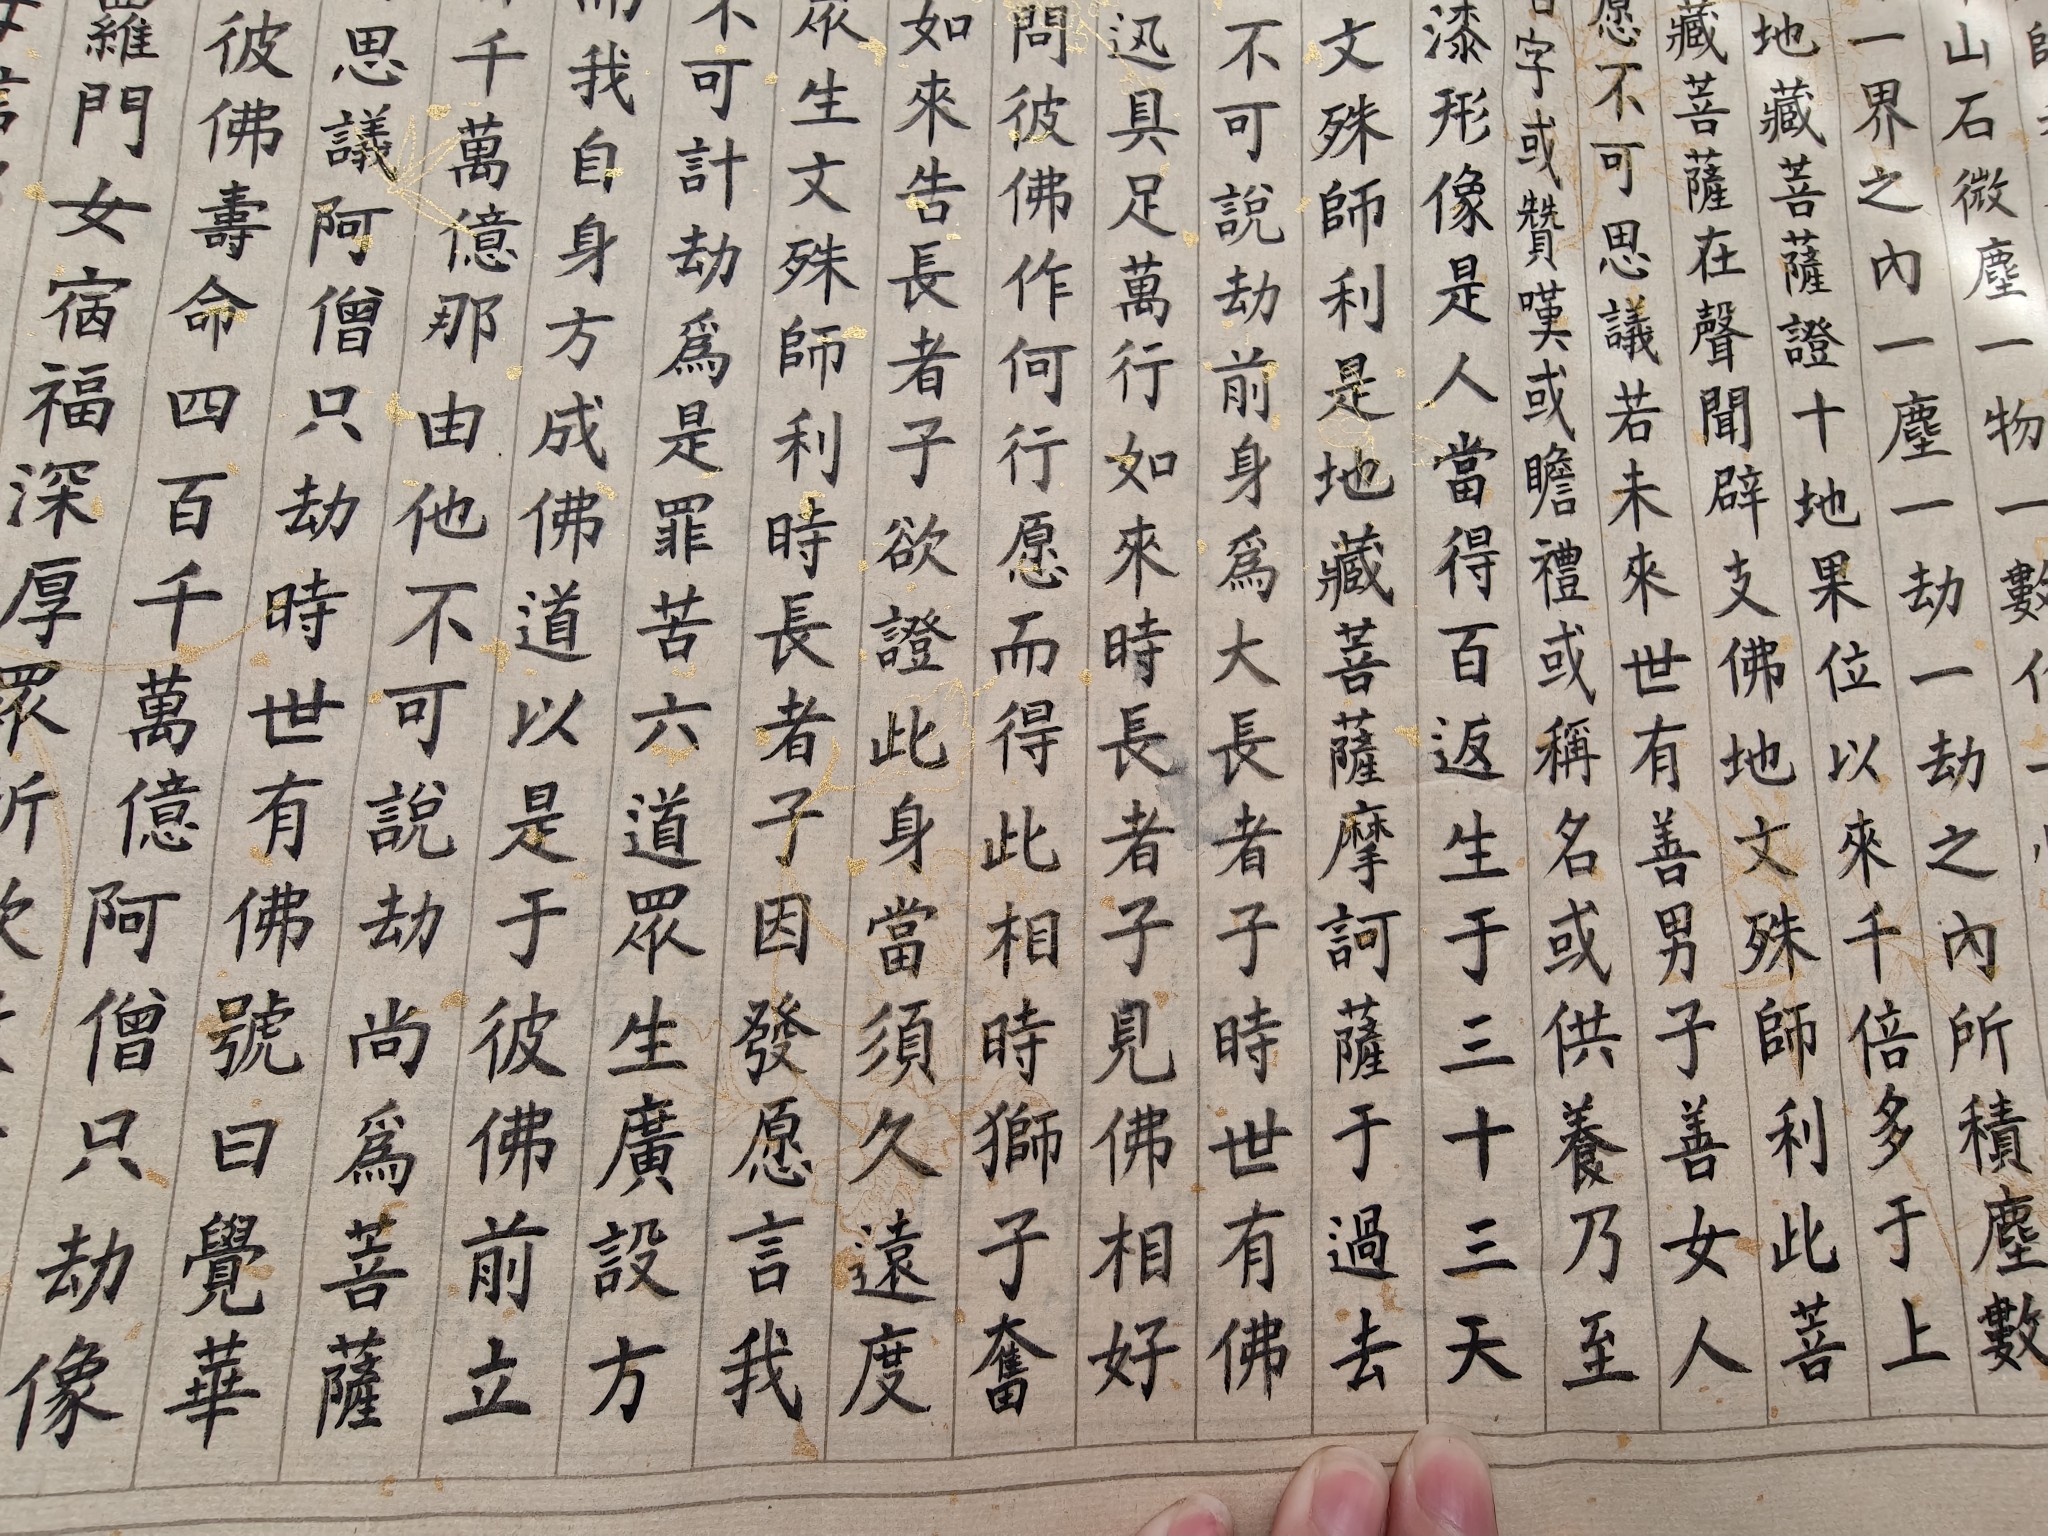 山石微塵一物一數作
一界之內一塵一劫一劫之內所積塵數
地藏菩薩證十地果位以來千倍多于上
藏菩薩在聲聞辟支佛地文殊師利此菩
愿不可思議若未來世有善男子善女人
字或贊嘆或瞻禮或稱名或供養乃至
漆形像是人當得百返生于三十三天
文殊師利是地藏菩薩摩訶薩于過去
不可說劫前身爲大長者子時世有佛
迅具足萬行如來時長者子見佛相好
問彼佛作何行愿而得此相時獅子奮
如來告長者子欲證此身當須久遠度
眾生文殊師利時長者子因發愿言我
不可計劫爲是罪苦六道眾生廣設方
而我自身方成佛道以是于彼佛前立
千萬億那由他不可說劫尚爲菩薩
思議阿僧只劫時世有佛號曰覺華
彼佛壽命四百千萬億阿僧只劫像
羅門女宿福深厚眾所欽